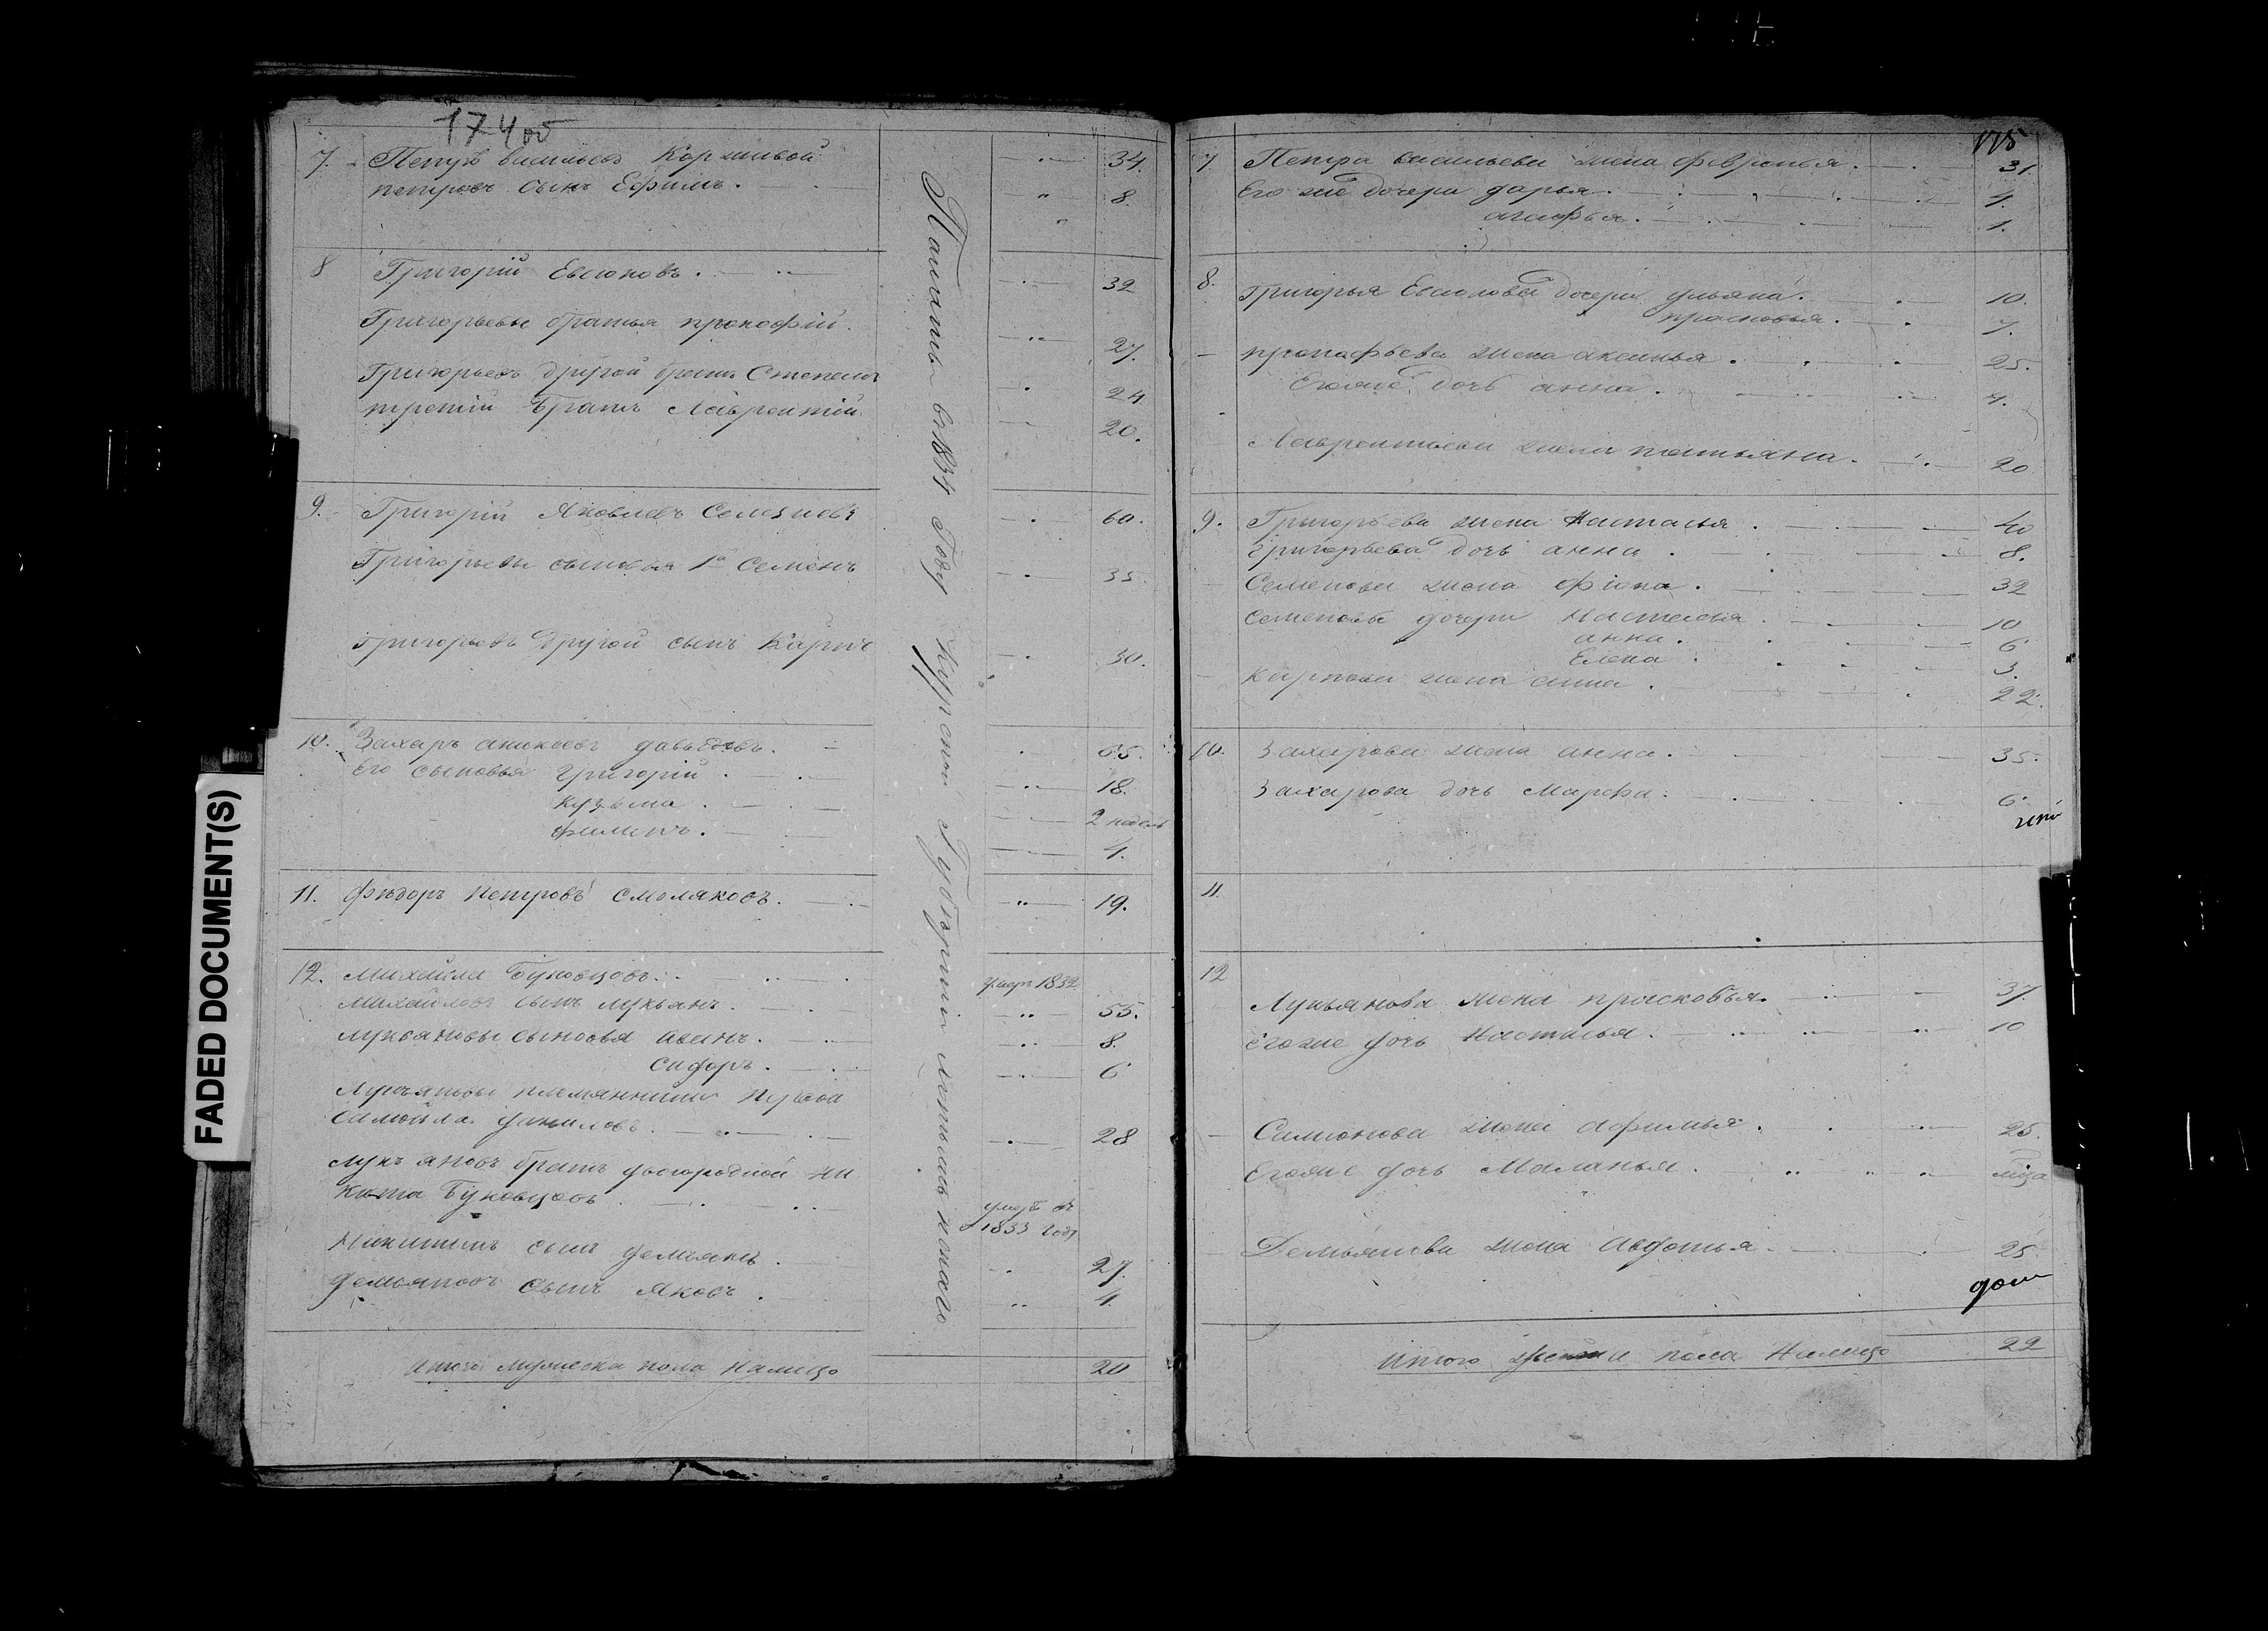 174 об
7. Петръ васильевъ Коршивой 34.
петровъ сынъ Ефимъ. 8.
8 Григорій Евсюковъ. 32
Григорьевы братья прокофій. 27.
Григорьевъ другой братъ Степанъ 24
третій братъ Лаврентій 20.
9. Григорій Яковлевъ Селезневъ 60.
Григорьевы сыновья 1й Семенъ 35.
Григорьевъ другой сынъ Карпъ 30.
10. Захаръ аникеевъ давыдовъ. 65.
Его сыновья григорій. 18.
Кузьма. 2 недель
филипъ. 4.
11. Фѣдоръ Петровъ Смоляковъ. 19.
12. Михайла Буковцовъ. умеръ 1832
Михайловъ сынъ лукьянъ. 55.
лукьяновы сыновья Иванъ. 8.
Сидоръ. 6
Лукьяновы племянники
Самойла даниловъ. 28
лукъяновъ братъ двоюродной Ни
кита Буковцовъ. умеръ въ
1833 году
Никитинъ сынъ демьянъ. 27.
демьяновъ сынъ Яковъ. 4.
Итого мужеска пола налицо 20
въ 1834 Году Курской Губерніи
175
7. Петра васильева жена февронья. 31.
Его же дочери дарья. 4.
агафья. 1.
8. Григорья Евсюкова дочери ульяна. 10.
прасковья. 7.
прокафьева жена аксинья. 25.
Егоже дочь анна. 4.
Лаврентьева жена татьяна. 20
9. Григорьева жена Настасья. 40
Григорьева дочь анна. 8.
Семенова жена фіона. 32
Семеновы дочери Настасья. 10
анна. 6
Елена. 3.
Карпова жена анна. 22.
10. Захарова жена анна. 35.
Захарова дочь Марфа. 6.
11.
12 Лукьянова жена прасковья. 37.
Егоже дочь Настасья. 10
Самойлова жена Афимья. 25.
Егоже дочь Маланья.
Демьянова жена Авдотья. 25
Итого женска пола Налицо 22
FADED DOCUMENT(S)